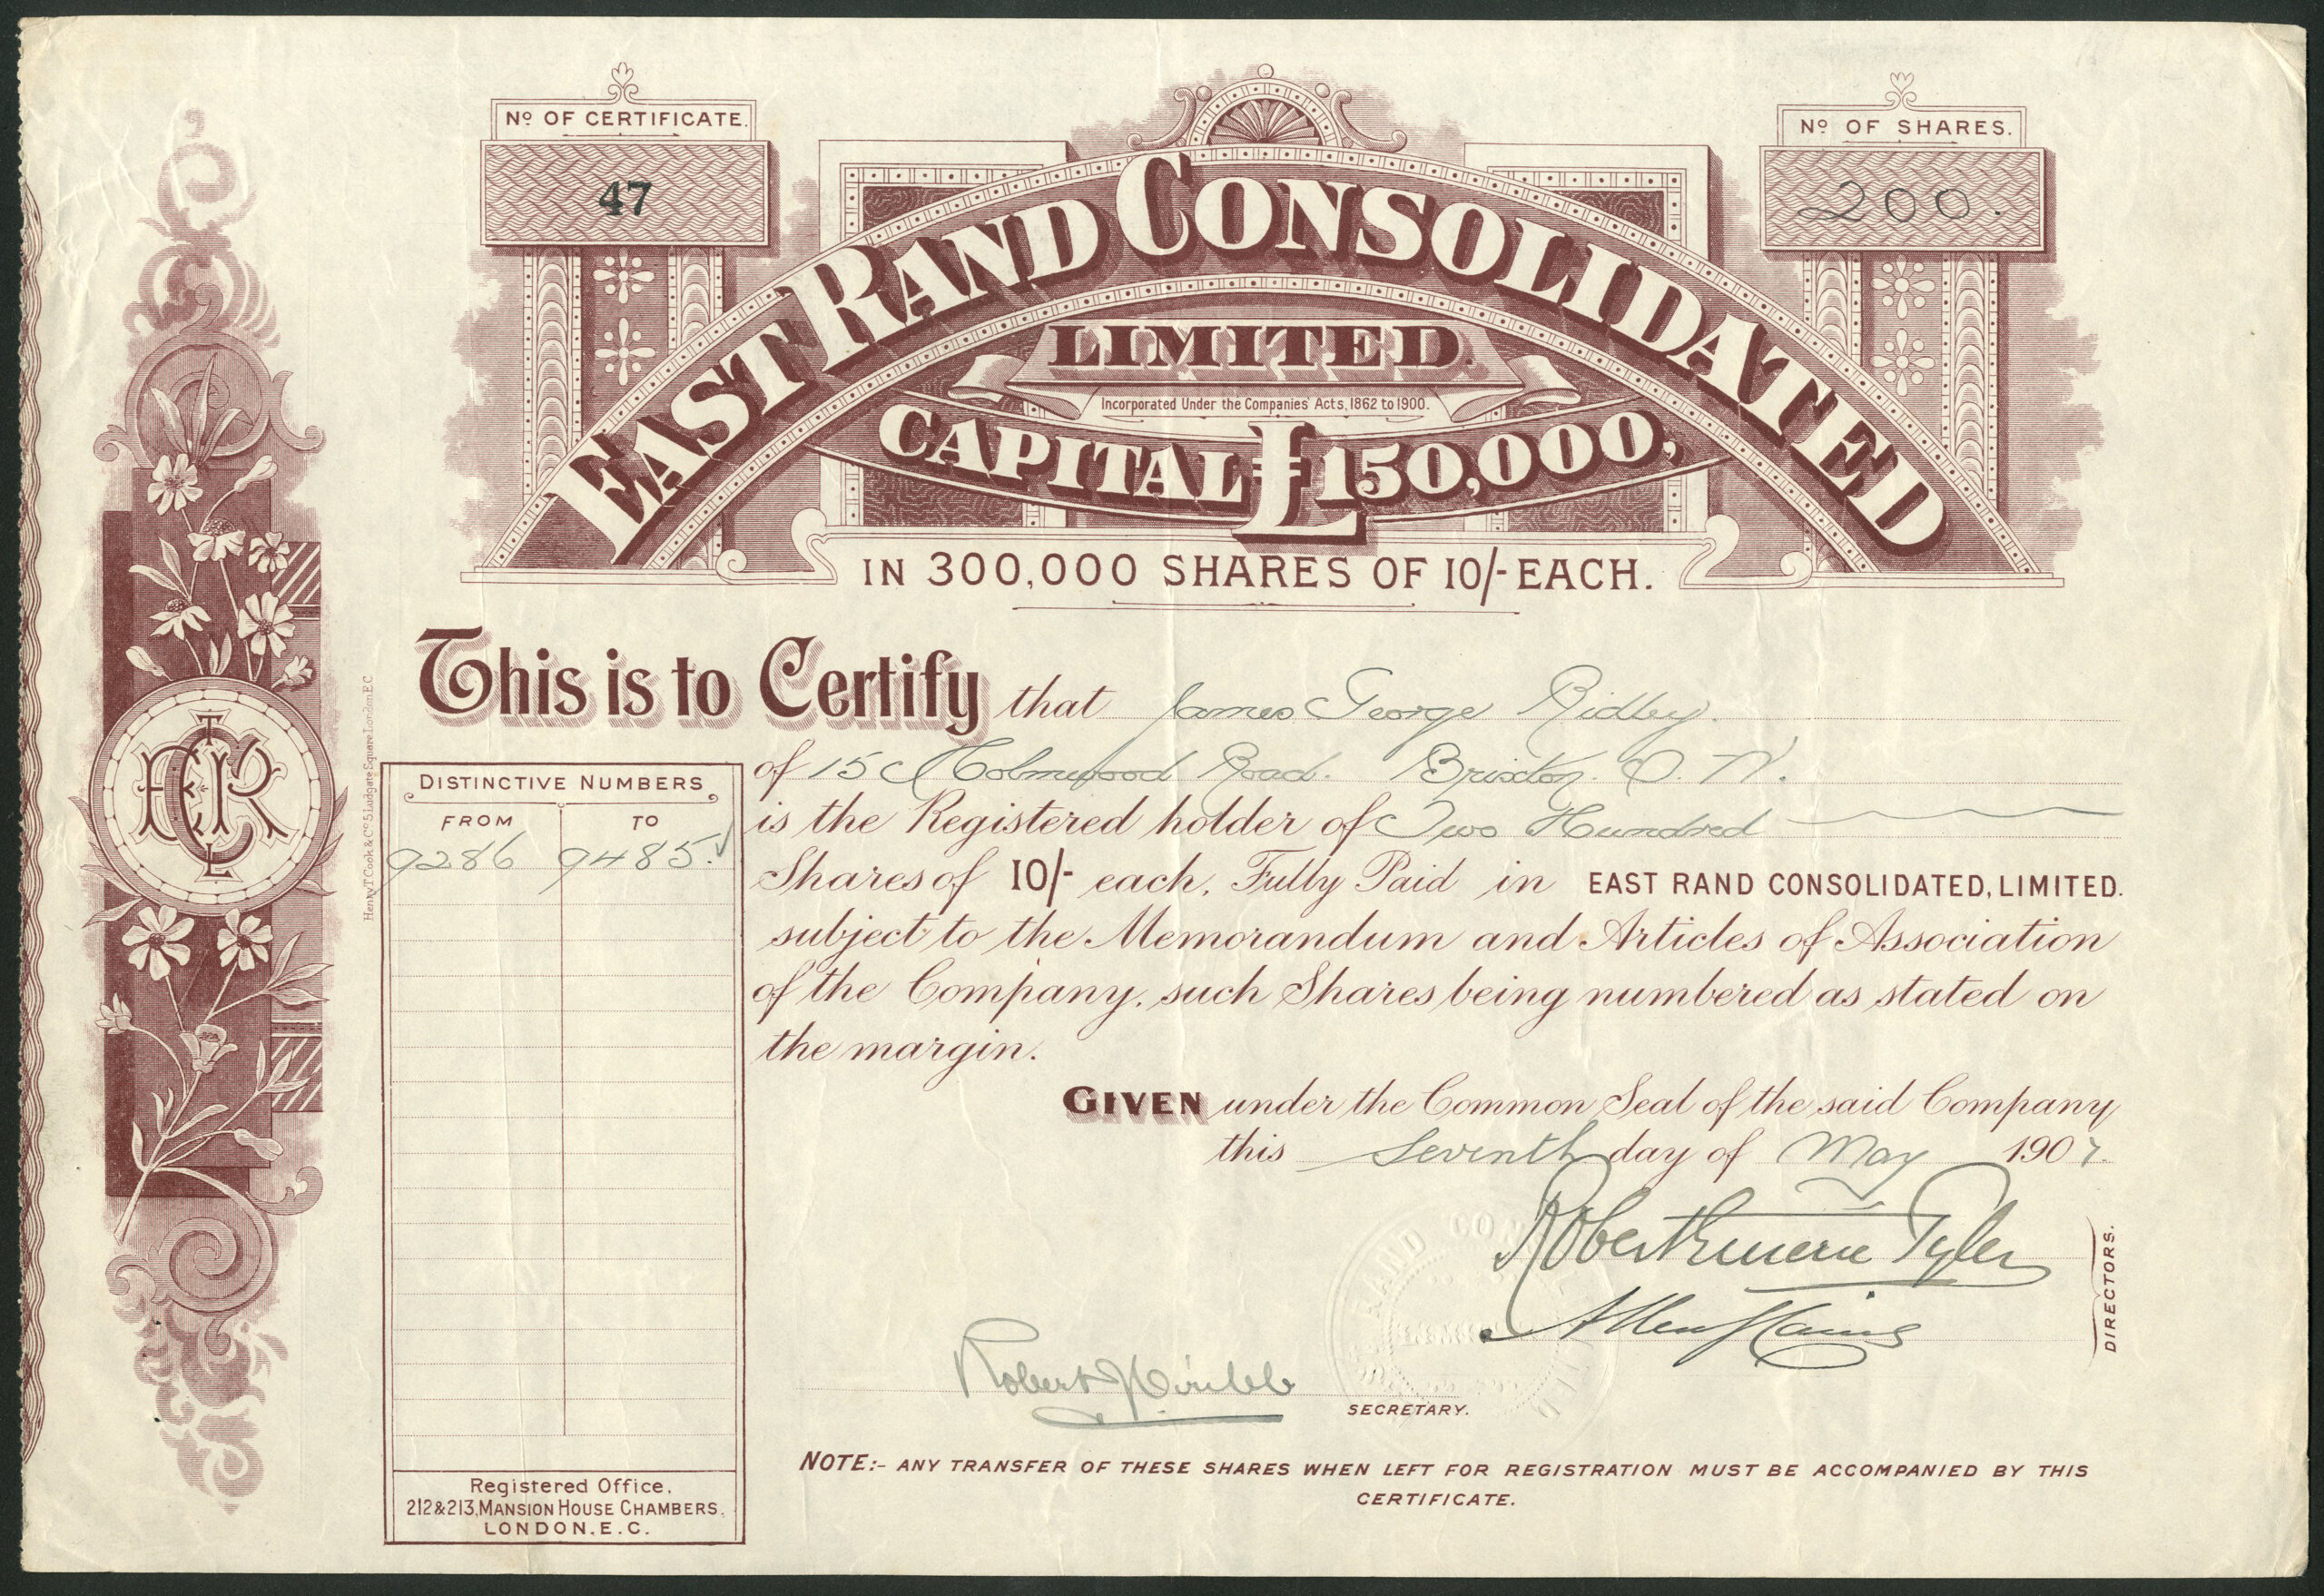 Nº OF CERTIFICATE.
47
Nº OF SHARES.
200.
EAST RAND CONSOLIDATED
LIMITED.
Incorporated Under the Companies' Acts, 1862 to 1900.
CAPITAL £150,000,
IN 300,000 SHARES OF 10/- EACH.
This is to Certify that James George Ridley.
of 15 Holmewood Road. Brixton. S. W.
is the Registered holder of Two Hundred
Shares of 10/- each, Fully Paid in EAST RAND CONSOLIDATED, LIMITED.
subject to the Memorandum and Articles of Association
of the Company, such Shares being numbered as stated on
the margin.
GIVEN under the Common Seal of the said Company
this Seventh day of May 1907.
DISTINCTIVE NUMBERS
FROM TO
9286 9485.
Henry T. Cook & Co. 5, Ludgate Square London E.C.
Tyler
DIRECTORS.
Allen
Robert
SECRETARY.
RAND CON
NOTE:- ANY TRANSFER OF THESE SHARES WHEN LEFT FOR REGISTRATION MUST BE ACCOMPANIED BY THIS
CERTIFICATE.
Registered Office,
212 & 213, MANSION HOUSE CHAMBERS,
LONDON, E.C.